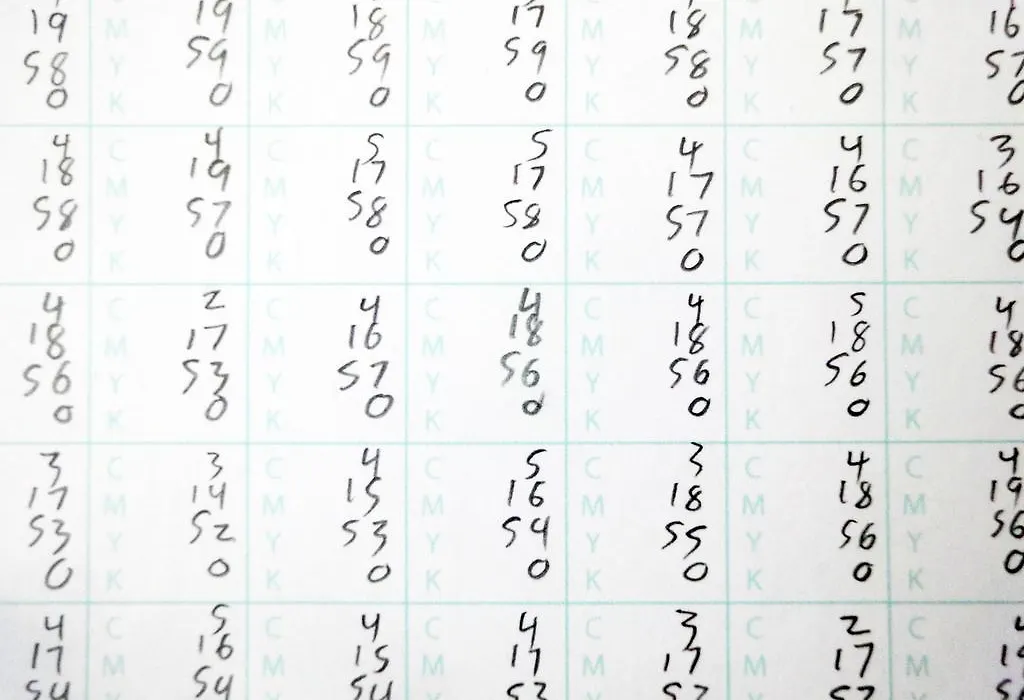 19 M 19 M 18 M 17 M 18 M 17 M 16
58 Y 59 Y 59 Y 59 Y 58 Y 57 Y 57
0 K 0 K 0 K 0 K 0 K 0 K 0
4 C 4 C 5 C 5 C 4 C 4 C 3
18 M 19 M 17 M 17 M 17 M 16 M 16
58 Y 57 Y 58 Y 58 Y 57 Y 57 Y 54
0 K 0 K 0 K 0 K 0 K 0 K 0
4 C 2 C 4 C 4 C 4 C 5 C 4
18 M 17 M 16 M 18 M 18 M 18 M 18
56 Y 53 Y 57 Y 56 Y 56 Y 56 Y 56
0 K 0 K 0 K 0 K 0 K 0 K 0
3 C 3 C 4 C 5 C 3 C 4 C 4
17 M 14 M 15 M 16 M 18 M 18 M 19
53 Y 52 Y 53 Y 54 Y 55 Y 56 Y 56
0 K 0 K 0 K 0 K 0 K 0 K 0
4 C 5 C 4 C 4 C 3 C 2 C
17 M 16 M 15 M 17 M 17 M 17 M
54 54 54